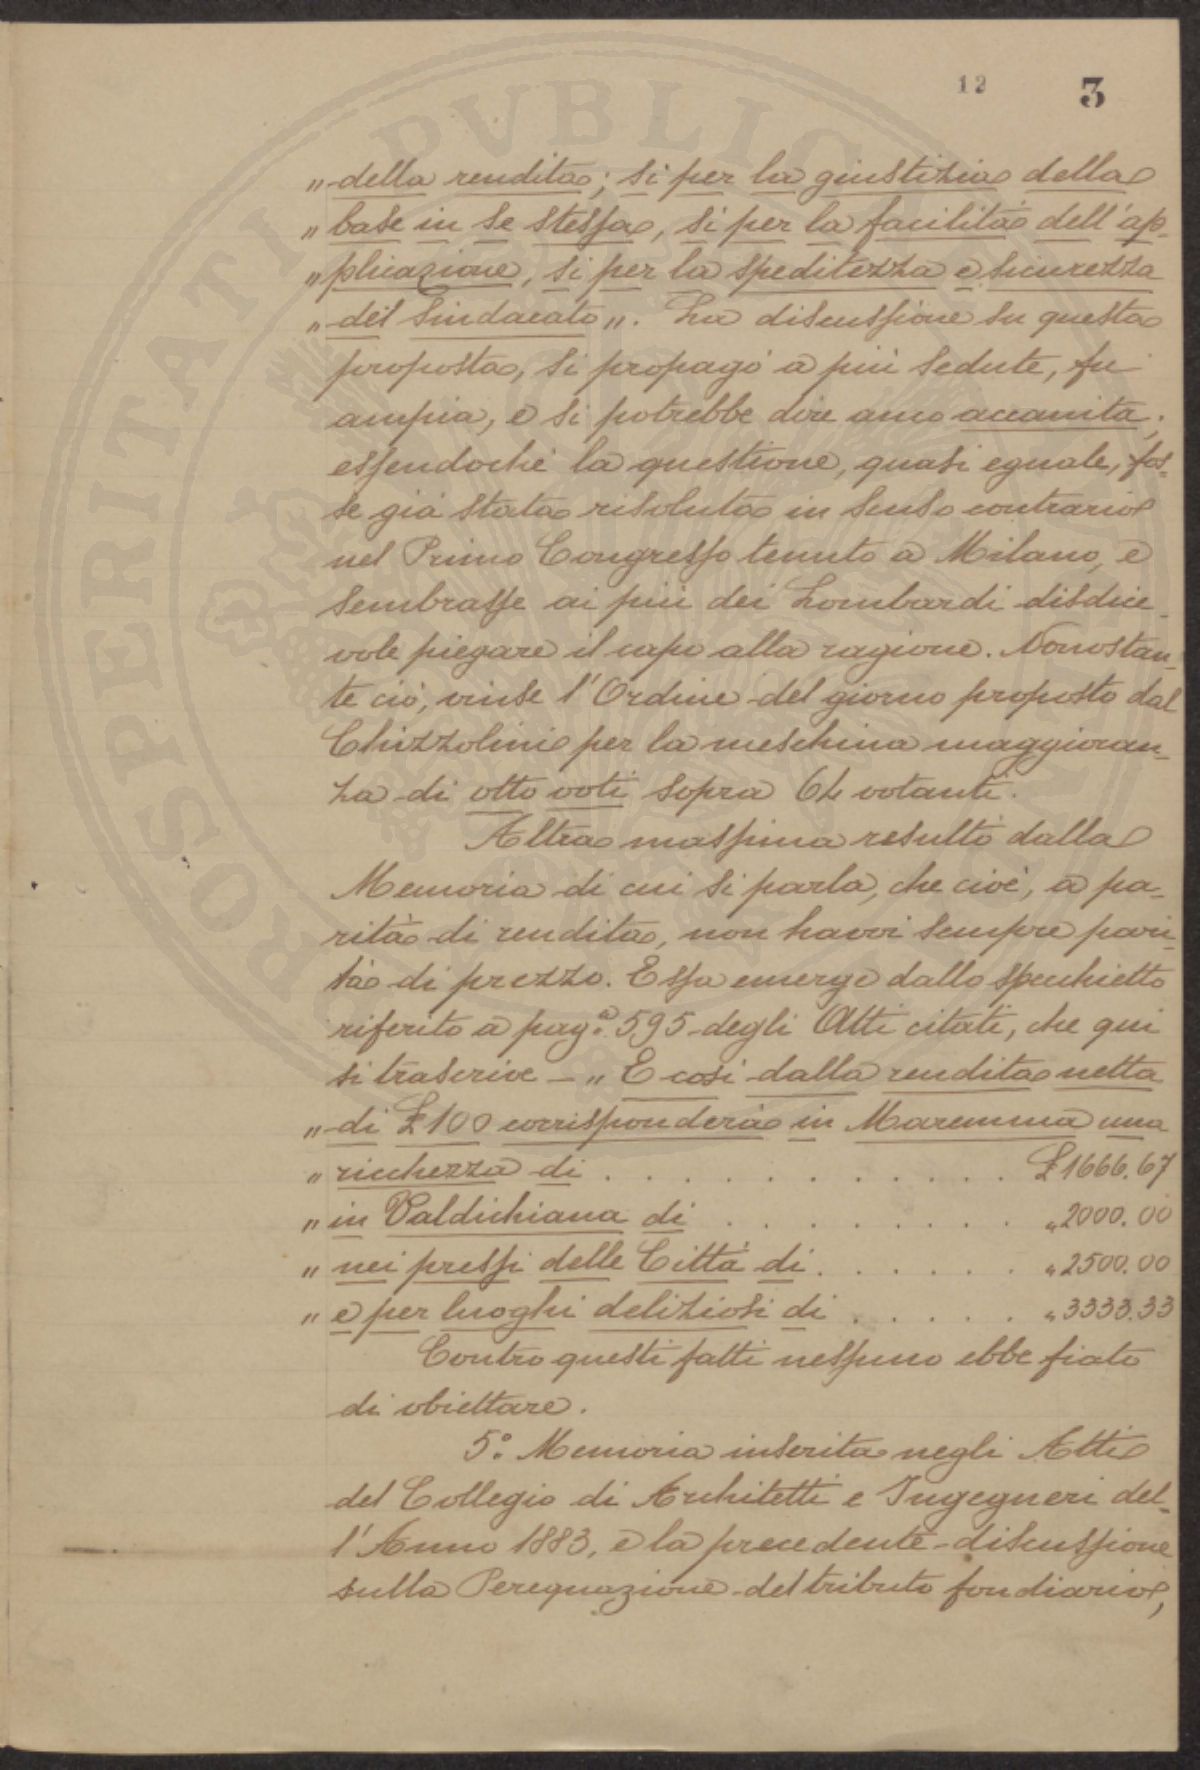 12 3
„ della rendita; si per la giustizia della
„ base in se stessa, si per la facilità dell'ap-
„ plicazione, si per la speditezza e sicurezza
„ del Sindacato „. La discussione su questa
proposta, si propagò a più sedute, fu
ampia, e si potrebbe dire anco accanita;
essendochè la questione, quasi eguale, fos-
se già stata risoluta in senso contrario
nel Primo Congresso tenuto a Milano, e
sembrasse ai più dei Lombardi disdice-
vole piegare il capo alla ragione. Nonostan-
te ciò, vinse l'Ordine del giorno proposto dal
Chizzolini per la meschina maggioran-
za di otto voti sopra 64 votanti.
Altra massima resultò dalla
Memoria di cui si parla, che cioè, a pa-
rità di rendita, non havvi sempre pari-
tà di prezzo. Essa emerge dallo specchietto
riferito a pag.ª 595 degli Atti citati, che qui
si trascrive — „ E così dalla rendita netta
„ di £ 100 corrisponderà in Maremma una
„ ricchezza di . . . . . . . . . . . . £ 1666.67
„ in Valdichiana di . . . . . . . . . „ 2000.00
„ nei pressi delle Città di . . . . . . „ 2500.00
„ e per luoghi deliziosi di . . . . . „ 3333.33
Contro questi fatti nessuno ebbe fiato
di obiettare.
5.° Memoria inserita negli Atti
del Collegio di Architetti e Ingegneri del-
l'Anno 1883, e la precedente discussione
sulla Perequazione del tributo fondiario,
PROSPERITATI PVBLICAE